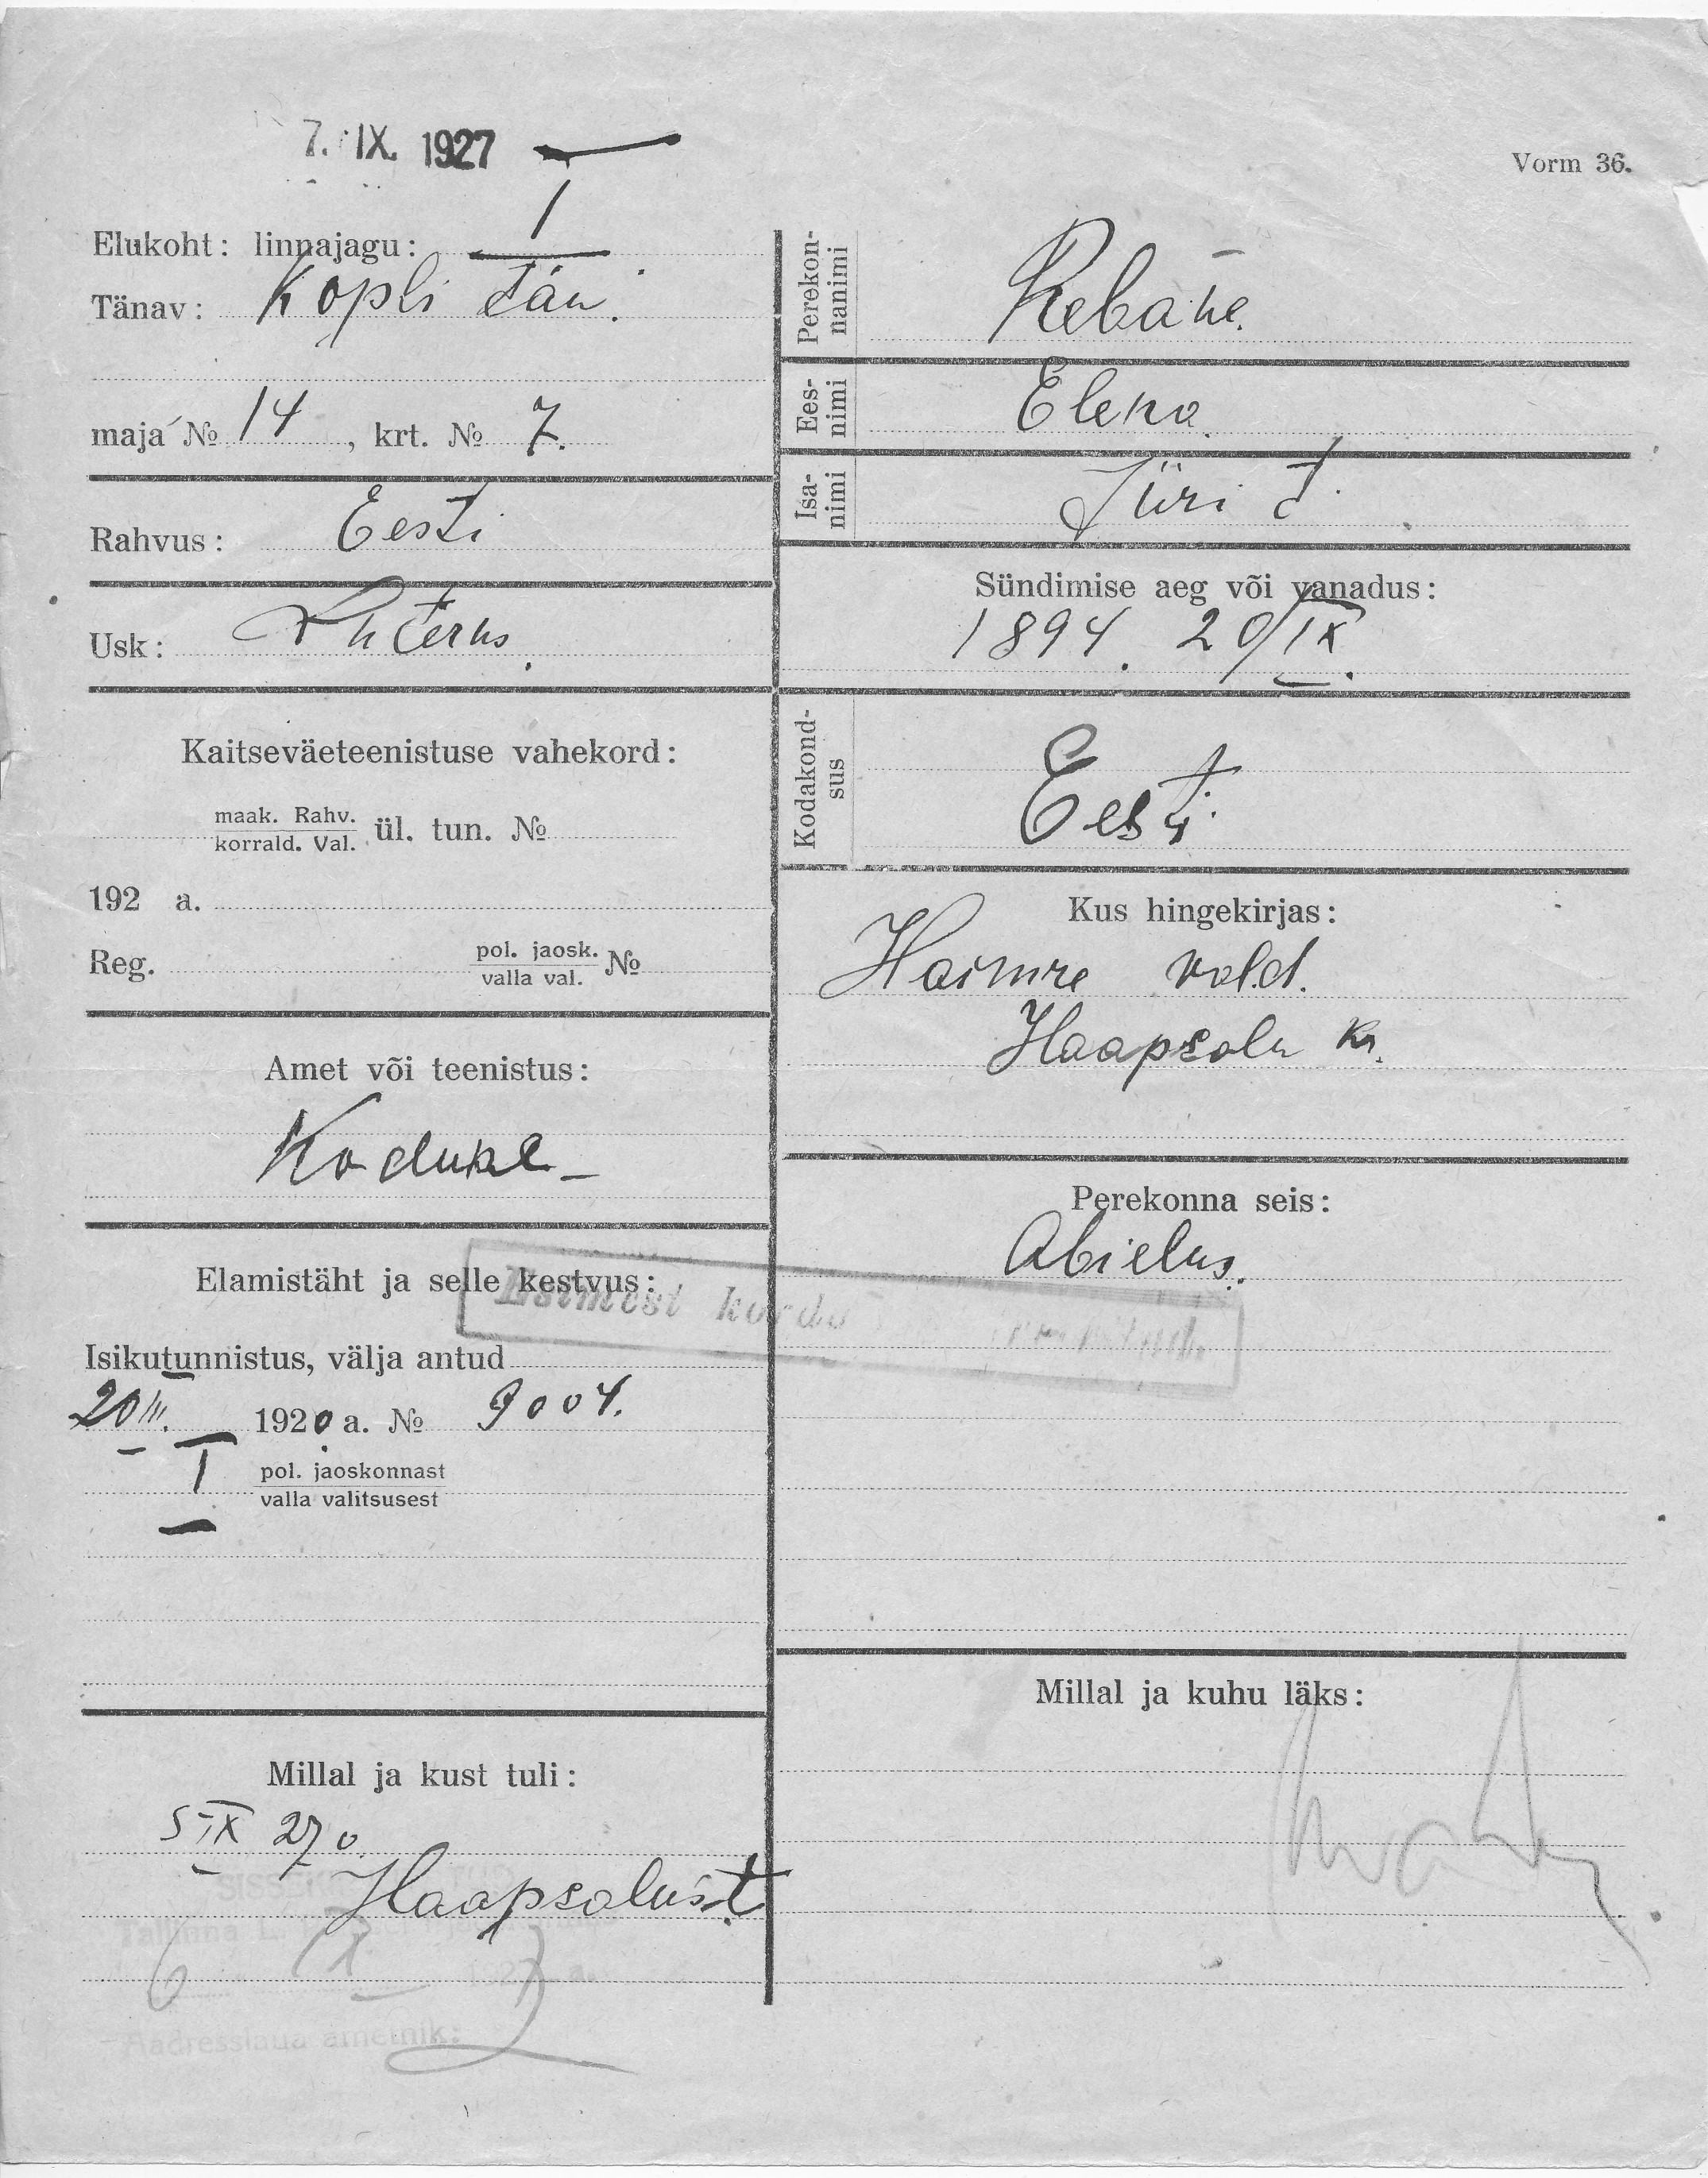 7. IX. 1927
Vorm 36.
Elukoht: linnajagu: I
Tänav: Kopli tän.
maja № 14, krt. № 7.
Rahvus: Eesti
Usk: Luterus.
Kaitseväeteenistuse vahekord:
maak. Rahv.
korrald. Val. ül. tun. №
192 a.
Reg. pol. jaosk. №
valla val.
Amet või teenistus:
Kodune
Elamistäht ja selle kestvus:
Esimest korda
Isikutunnistus, välja antud
20 III. 1920 a. № 9004.
I pol. jaoskonnast
valla valitsusest
Millal ja kust tuli:
5 IX 27
Haapsalust
Tallinna
6 IX 1927 a.
Aadresslaua ametnik:
Perekon-
nanimi
Rebane.
Ees-
nimi
Elena.
Isa-
nimi
Jüri t.
Sündimise aeg või vanadus:
1894. 20/IX.
Kodakond-
sus
Eesti
Kus hingekirjas:
Haimre vald.
Haapsalu kr.
Perekonna seis:
Abielus.
Millal ja kuhu läks: